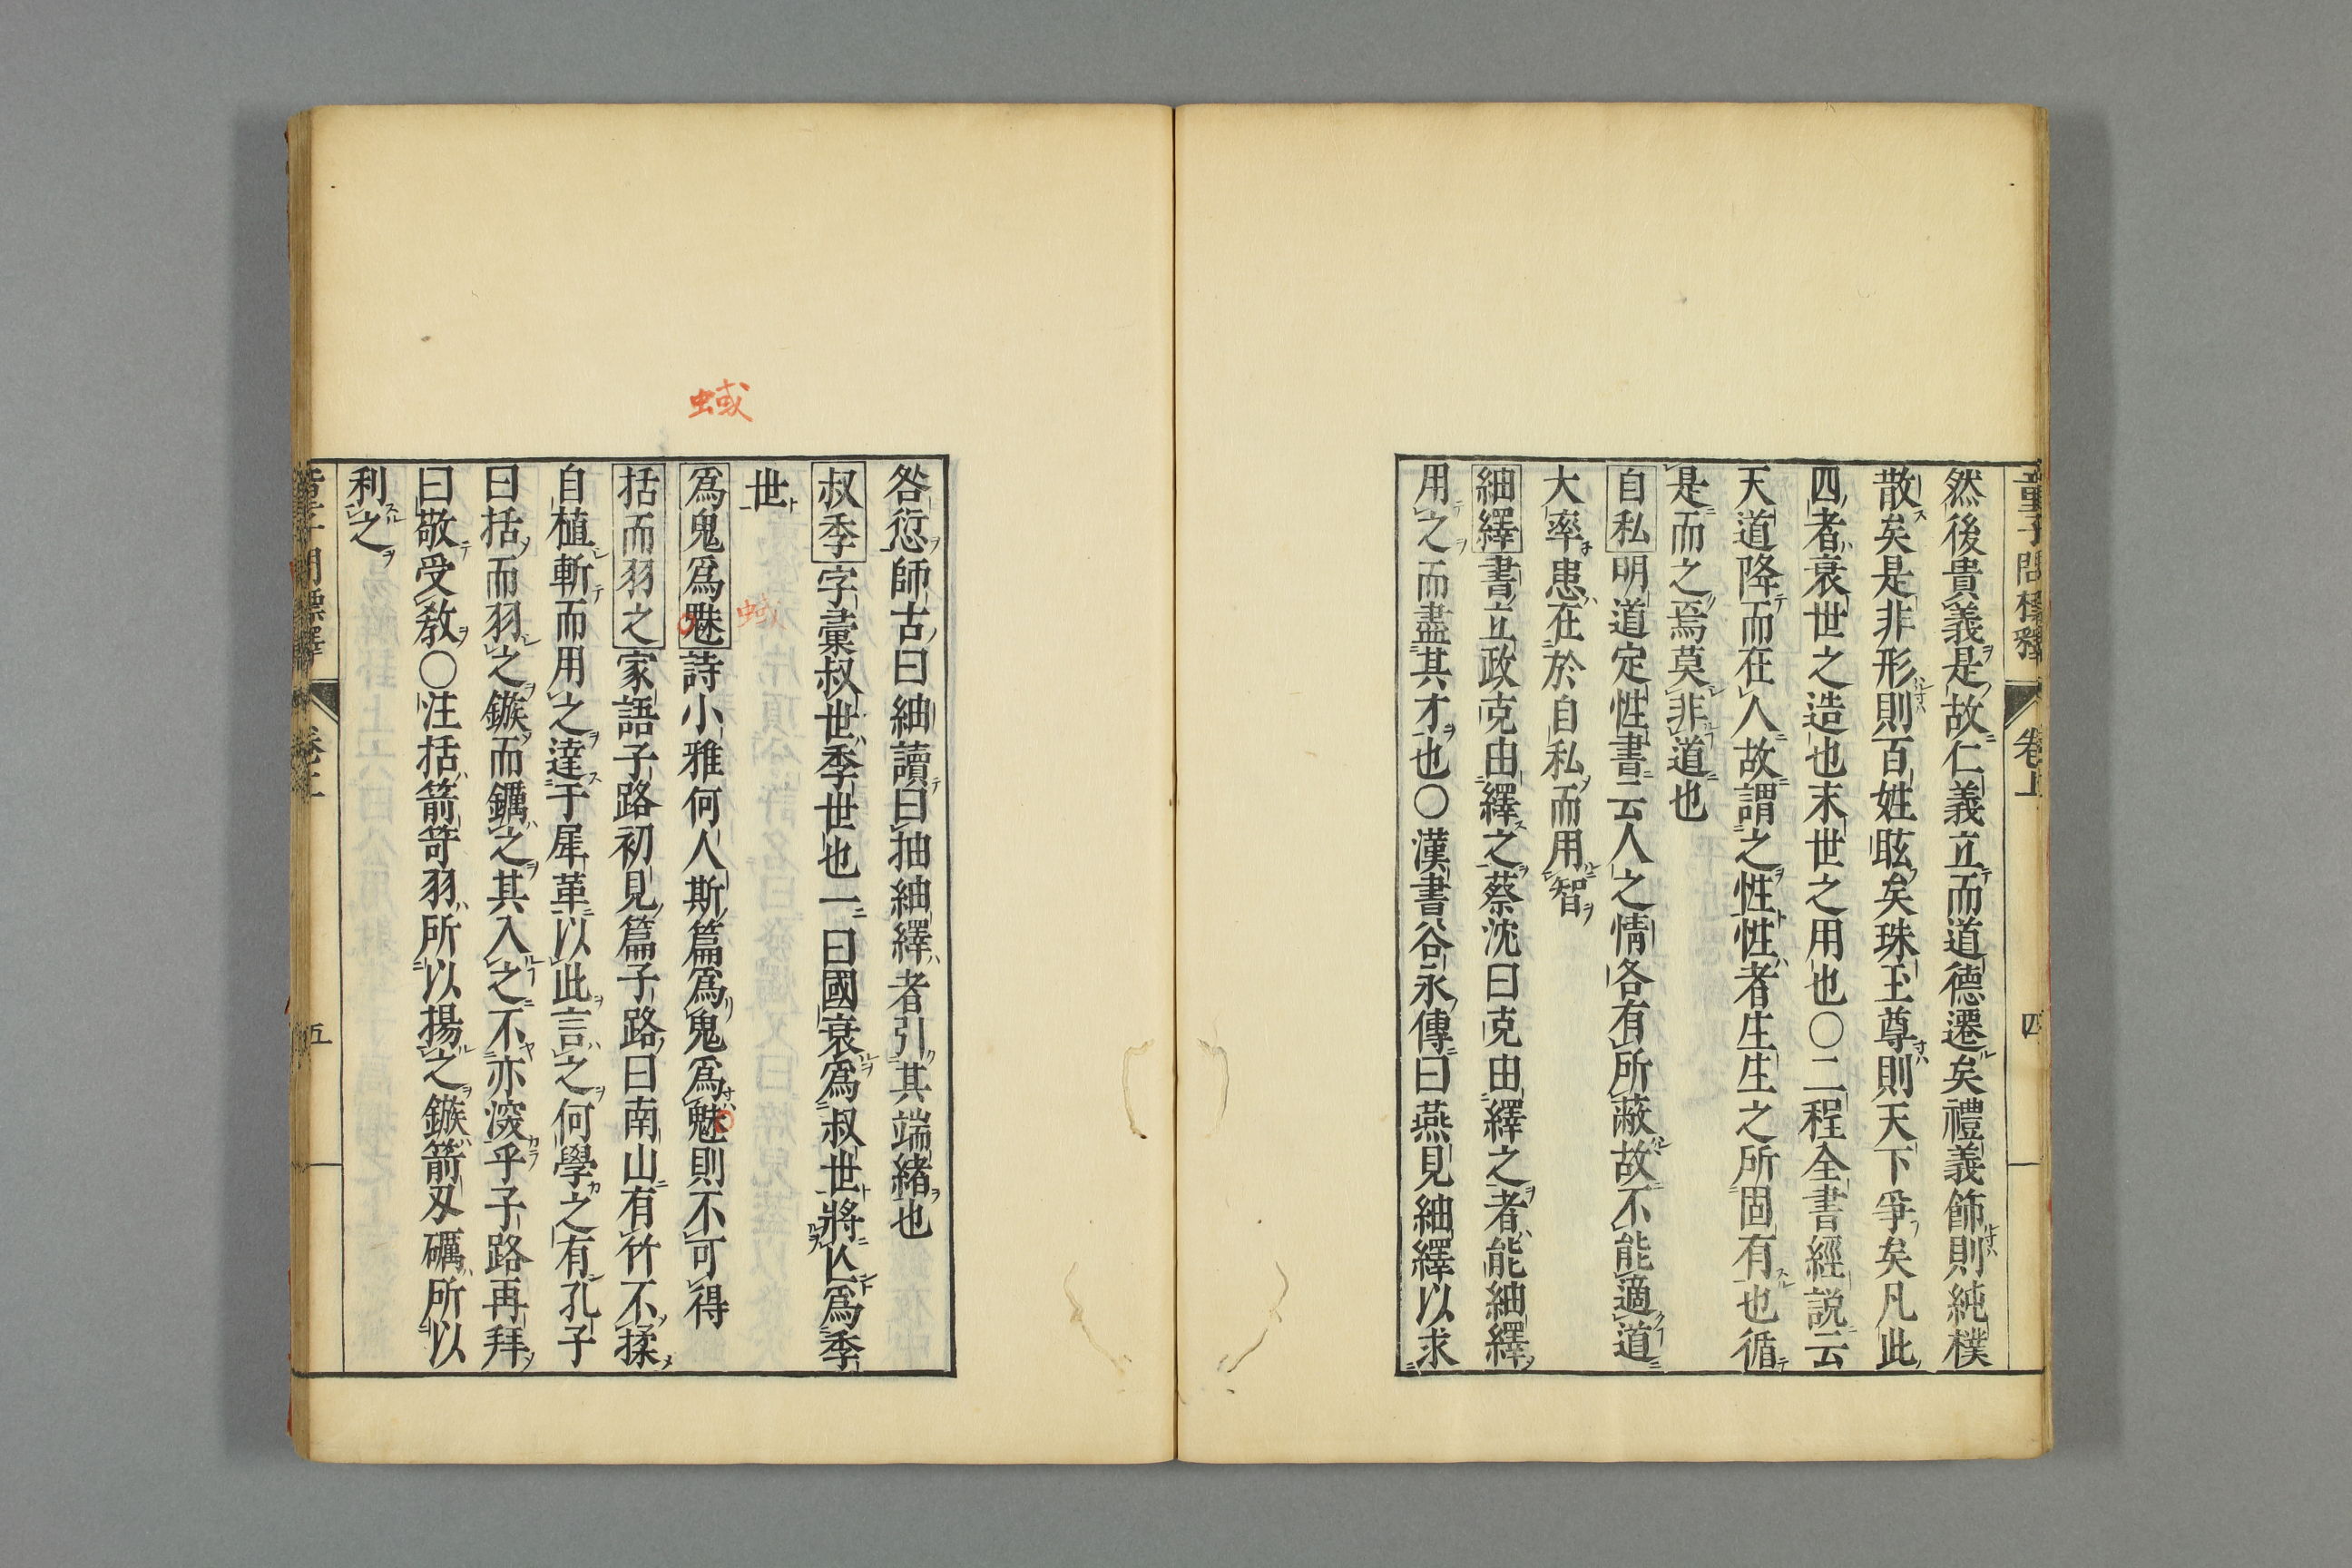 童子問標釋 卷上 四
然後貴義是故仁義立而道德遷矣禮義飾則純樸
散矣是非形則百姓眩矣珠玉尊則天下爭矣凡此
四者衰世之造也末世之用也〇二程全書經説云
天道降而在人故謂之性性者生生之所固有也循
是而之焉莫非道也
自私明道定性書云人之情各有所蔽故不能適道
大率患在於自私而用智
紬繹書立政克由繹之蔡沈曰克由繹之者能紬繹
用之而盡其才也〇漢書谷永傳曰燕見紬繹以求
咎愆師古曰紬讀曰抽紬繹者引其端緒也
叔季字彙叔世季世也一曰國衰爲叔世將亾爲季
世
爲鬼爲魅詩小雅何人斯篇爲鬼爲魅則不可得
括而羽之家語子路初見篇子路曰南山有竹不揉
自植斬而用之達于犀革以此言之何學之有孔子
曰括而羽之鏃而鑴之其入之不亦深乎子路再拜
曰敬受敎〇注括箭笴羽所以揚之鏃箭刄礪所以
利之
童子問標釋 卷上 五
蜮
蜮